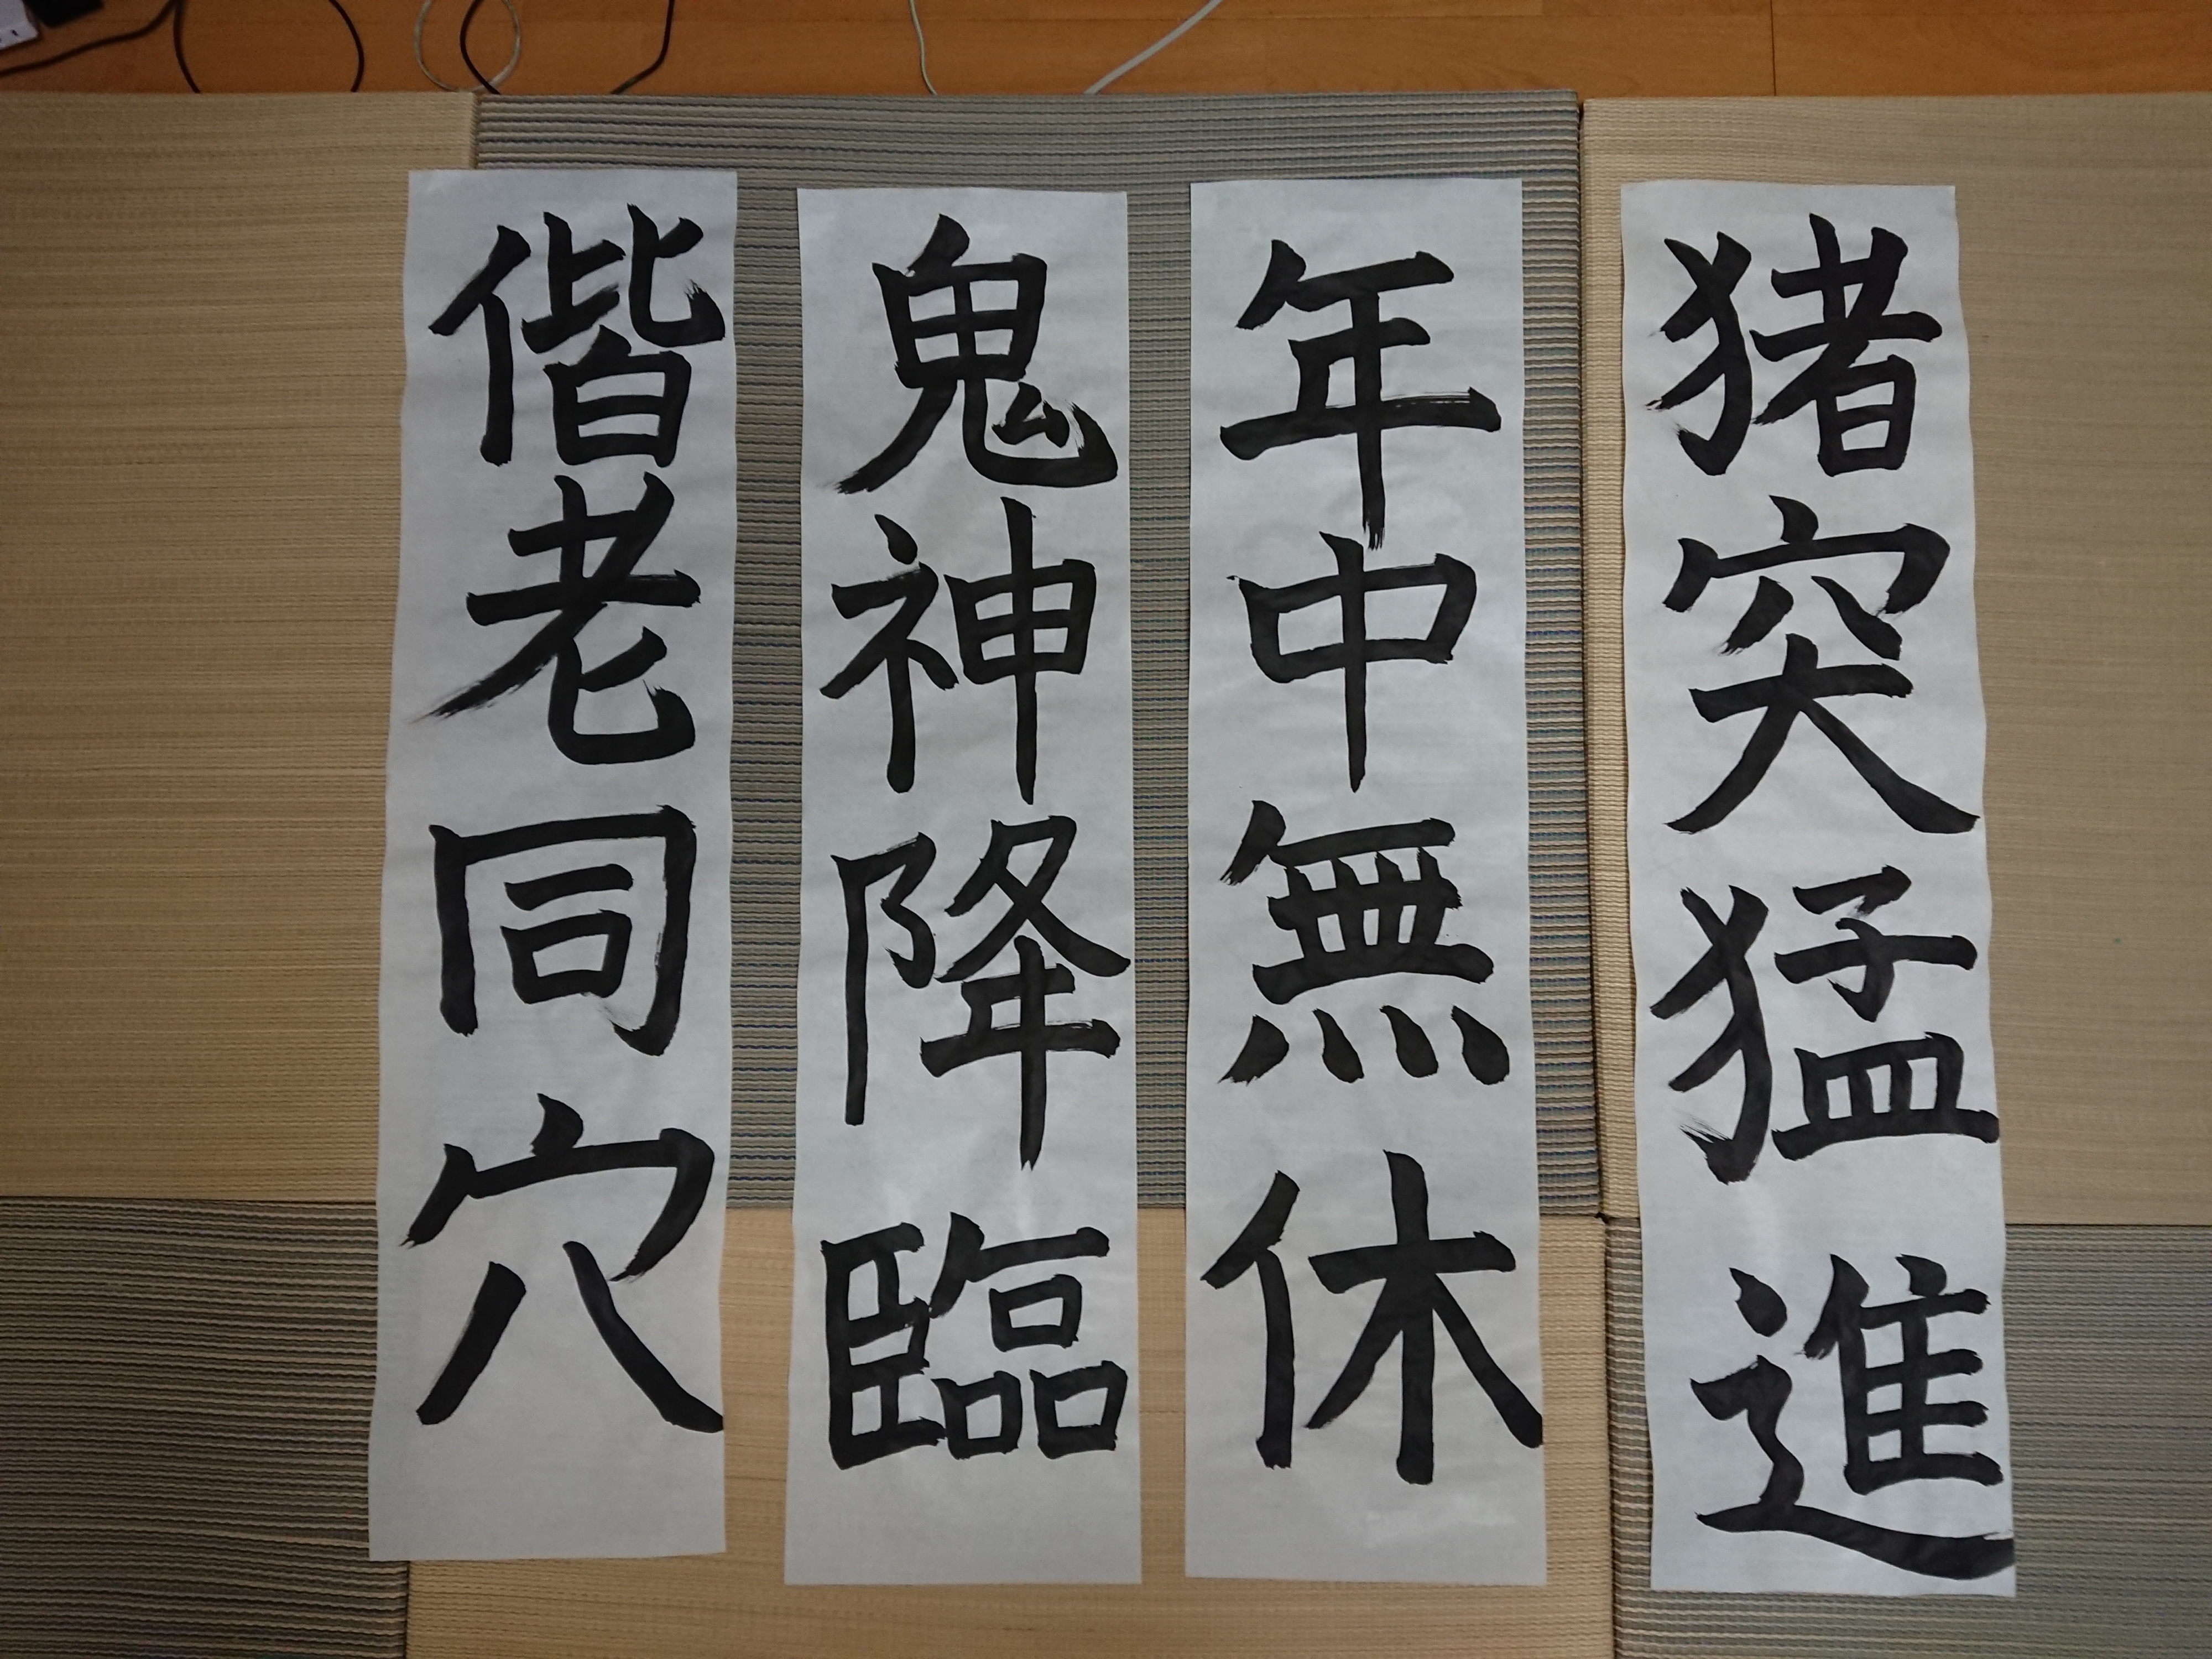 猪突猛進
年中無休
鬼神降臨
偕老同穴